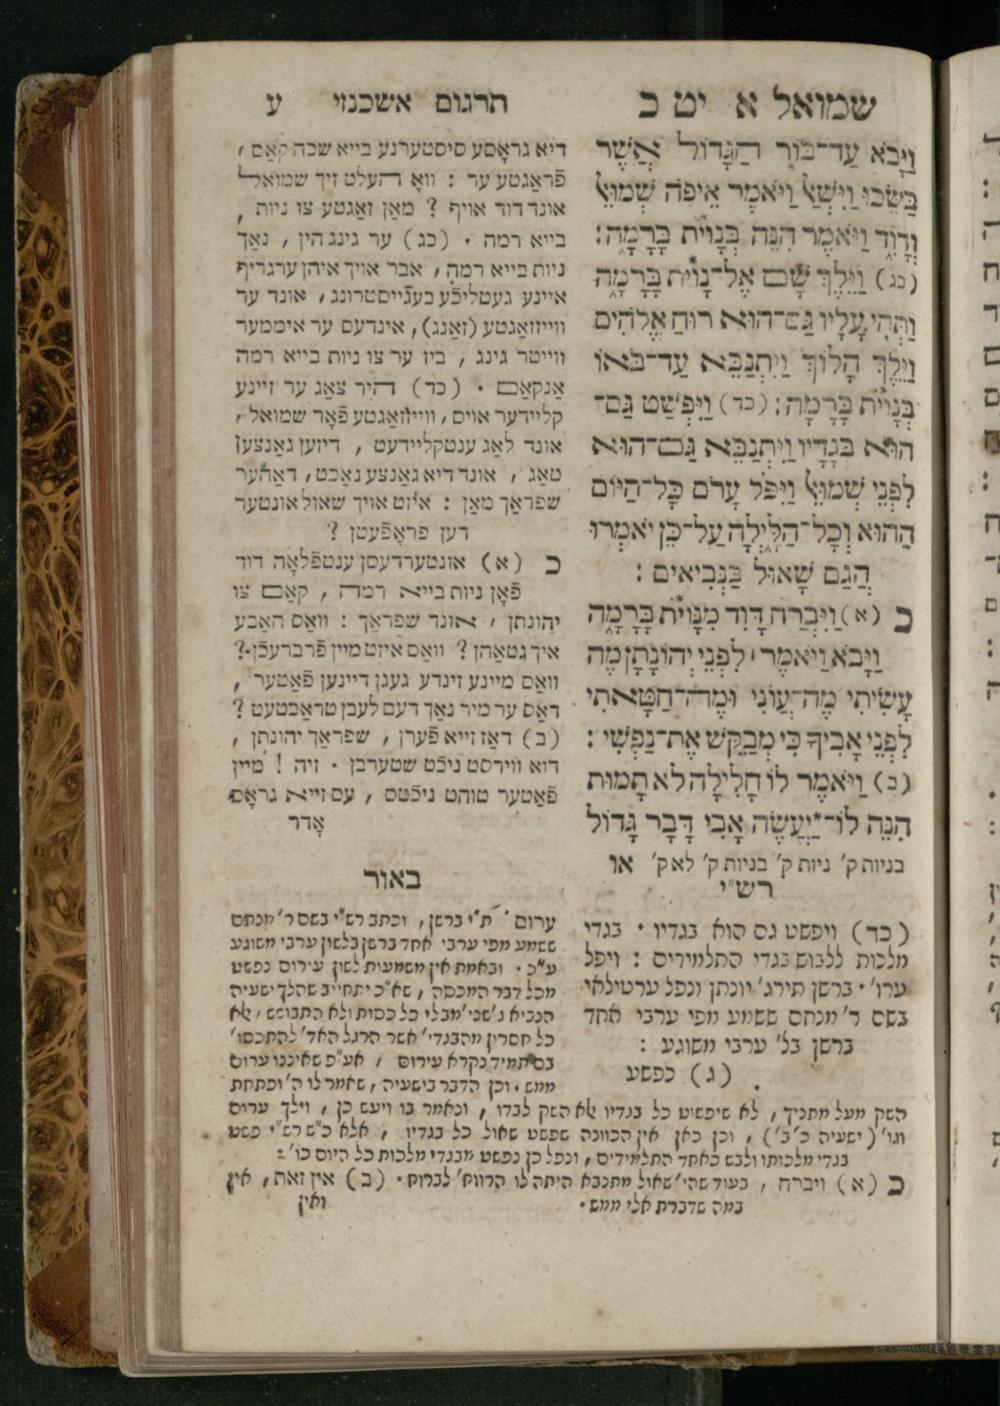 שמואל א יט כ
תרגום אשכנזי ע
וַיָּבֹא עַד־בּוֹר הַגָּדוֹל אֲשֶׁר
בַּשֶּׂכוּ וַיִּשְׁאַל וַיֹּאמֶר אֵיפֹה שְׁמוּאֵל
וְדָוִד וַיֹּאמֶר הִנֵּה בְּנָוִית בָּרָמָה׃
(כג) וַיֵּלֶךְ שָׁם אֶל־נָוִית בָּרָמָה
וַתְּהִי עָלָיו גַּם־הוּא רוּחַ אֱלֹהִים
וַיֵּלֶךְ הָלוֹךְ וַיִּתְנַבֵּא עַד־בֹּאוֹ
בְּנָוִית בָּרָמָה׃ (כד) וַיִּפְשַׁט גַּם־
הוּא בְּגָדָיו וַיִּתְנַבֵּא גַּם־הוּא
לִפְנֵי שְׁמוּאֵל וַיִּפֹּל עָרֹם כָּל־הַיּוֹם
הַהוּא וְכָל־הַלָּיְלָה עַל־כֵּן יֹאמְרוּ
הֲגַם שָׁאוּל בַּנְּבִיאִים׃
כ (א) וַיִּבְרַח דָּוִד מִנָּוִית בָּרָמָה
וַיָּבֹא וַיֹּאמֶר ׀ לִפְנֵי יְהוֹנָתָן מֶה
עָשִׂיתִי מֶה־עֲוֹנִי וּמֶה־חַטָּאתִי
לִפְנֵי אָבִיךָ כִּי מְבַקֵּשׁ אֶת־נַפְשִׁי׃
(ב) וַיֹּאמֶר לוֹ חָלִילָה לֹא תָמוּת
הִנֵּה לוֹ־*יַעֲשֶׂה אָבִי דָּבָר גָּדוֹל
בניות ק׳ ניות ק׳ בניות ק׳ לא ק׳ או
דיא גראָסע סיסטערנע בייא שכה קאַם ,
פֿראַגטע ער : וואָ העלט זיך שמואל
אונד דוד אויף ? מאַן זאַגטע צו ניות ,
בייא רמה . (כג) ער גינג הין , נאַך
ניות בייא רמה , אבר אויך איהן ערגריף
איינע געטליכֿע בעגייסטרונג , אונד ער
ווייזזאַגטע (זאַנג), אינדעם ער איממער
ווייטר גינג , ביז ער צו ניות בייא רמה
אַנקאַם . (כד) היר צאָג ער זיינע
קליידער אויס, ווייזזאַגטע פֿאָר שמואל ,
אונד לאַג ענטקליידעט , דיזען גאַנצען
טאַג , אונד דיא גאַנצע נאַכט, דאַהער
שפראַך מאַן : איזט אויך שאול אונטער
דען פראָפֿעטן ?
כ (א) אונטערדעסן ענטפֿלאָה דוד
פֿאָן ניות בייא רמה , קאַם צו
יהונתן , אונד שפראַך : וואַס האַבע
איך געטאַהן ? וואַס איזט מיין פֿרברעכֿן ?
וואַס מיינע זינדע געגן דיינען פֿאַטער ,
דאַס ער מיר נאַך דעם לעבן טראַכטעט ?
(ב) דאַז זייא פֿערן , שפראַך יהונתן ,
דוא ווירסט ניכֿט שטערבן . זיה ! מיין
פֿאַטער טוהט ניכֿטס , עס זייא גראָס
אָדר
רש״י
(כד) ויפשט גם הוא בגדיו . בגדי
מלכות ללבוש בגדי התלמידים : ויפל
ערו׳ . ברשן תירג׳ יונתן ונפל ערטילאי
בשם ר׳ מנחם ששמע מפי ערבי אחד
ברשן בל׳ ערבי משוגע :
(ג) כפשע
באור
ערום . ת״י ברשן, וכתב רש״י בשם ר׳ מנחם
ששמע מפי ערבי אחד ברשן בלשון ערבי משוגע
ע״כ . ובאמת אין משמעות לשון עירום נפשט
מכל דבר המכסה , שא״כ יתחייב שהלך ישעיה
הנביא ג׳ שני׳ מבלי כל כסות ולא התבושש , אלא
כל חסרין מהבגדי׳ אשר הרגל האד׳ להתכסו׳
בם תמיד נקרא עירום , אע״פ שאיננו ערום
ממש . וכן הדבר בישעיה , שאמר לו ה׳ ופתחת
השק מעל מתניך , לא שיפשוט כל בגדיו אלא השק לבדו , ונאמר בו ויעש כן , וילך ערום
וגו׳ (ישעיה כ׳ ב׳) , וכן כאן אין הכוונה שפשט שאול כל בגדיו , אלא כ״ש רש״י פשט
בגדי מלכותו ולבש כאחד התלמידים , ונפל כן נפשט מבגדי מלכות כל היום כו׳ :
כ (א) ויברח , בעוד שהי׳ שאול מתנבא היתה לו הרווח׳ לברוח . (ב) אין זאת , אין
במה שדברת אלי ממש .
ואין